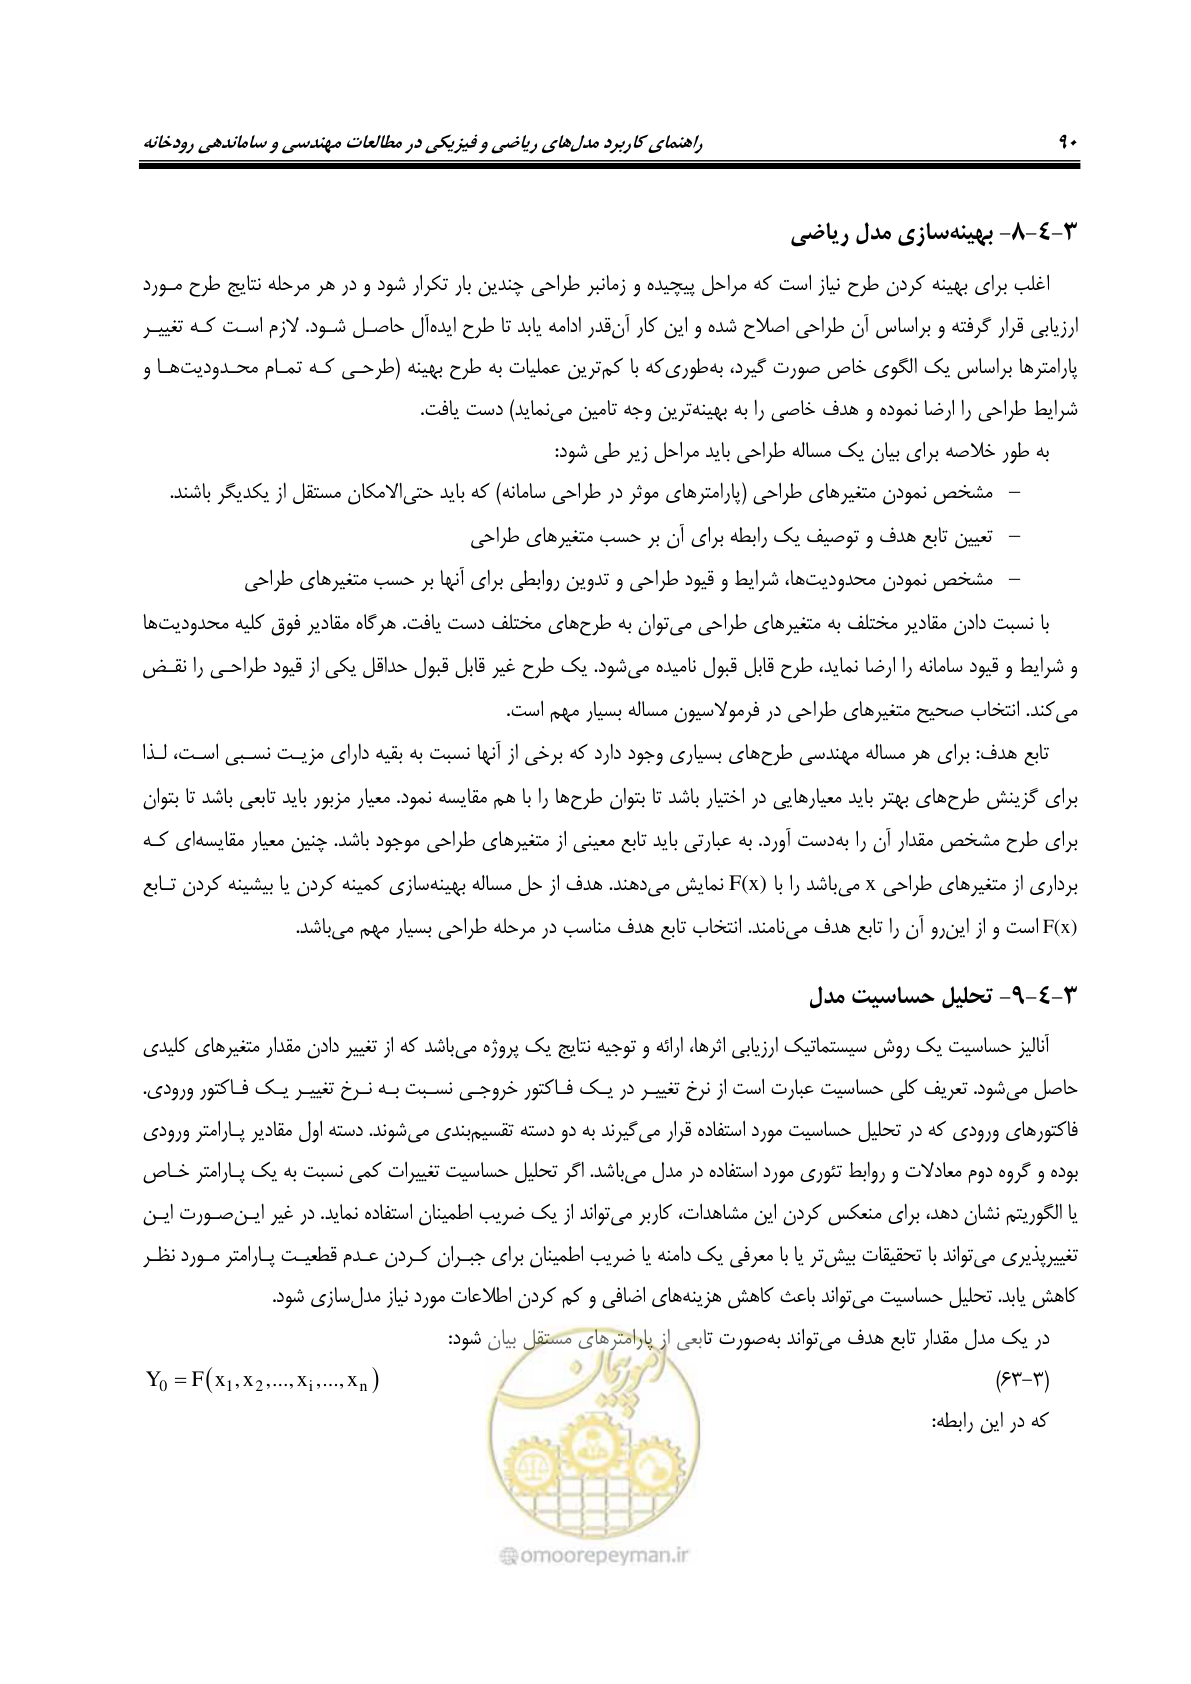 ۹۰ راهنمای کاربرد مدل‌های ریاضی و فیزیکی در مطالعات مهندسی و ساماندهی رودخانه
۳-۴-۸- بهینه‌سازی مدل ریاضی
اغلب برای بهینه کردن طرح نیاز است که مراحل پیچیده و زمانبر طراحی چندین بار تکرار شود و در هر مرحله نتایج طرح مـورد
ارزیابی قرار گرفته و براساس آن طراحی اصلاح شده و این کار آن‌قدر ادامه یابد تا طرح ایده‌آل حاصـل شـود. لازم اسـت کـه تغییـر
پارامترها براساس یک الگوی خاص صورت گیرد، به‌طوری‌که با کم‌ترین عملیات به طرح بهینه (طرحـی کـه تمـام محـدودیت‌هـا و
شرایط طراحی را ارضا نموده و هدف خاصی را به بهینه‌ترین وجه تامین می‌نماید) دست یافت.
به طور خلاصه برای بیان یک مساله طراحی باید مراحل زیر طی شود:
– مشخص نمودن متغیرهای طراحی (پارامترهای موثر در طراحی سامانه) که باید حتی‌الامکان مستقل از یکدیگر باشند.
– تعیین تابع هدف و توصیف یک رابطه برای آن بر حسب متغیرهای طراحی
– مشخص نمودن محدودیت‌ها، شرایط و قیود طراحی و تدوین روابطی برای آنها بر حسب متغیرهای طراحی
با نسبت دادن مقادیر مختلف به متغیرهای طراحی می‌توان به طرح‌های مختلف دست یافت. هرگاه مقادیر فوق کلیه محدودیت‌ها
و شرایط و قیود سامانه را ارضا نماید، طرح قابل قبول نامیده می‌شود. یک طرح غیر قابل قبول حداقل یکی از قیود طراحـی را نقـض
می‌کند. انتخاب صحیح متغیرهای طراحی در فرمولاسیون مساله بسیار مهم است.
تابع هدف: برای هر مساله مهندسی طرح‌های بسیاری وجود دارد که برخی از آنها نسبت به بقیه دارای مزیـت نسـبی اسـت، لـذا
برای گزینش طرح‌های بهتر باید معیارهایی در اختیار باشد تا بتوان طرح‌ها را با هم مقایسه نمود. معیار مزبور باید تابعی باشد تا بتوان
برای طرح مشخص مقدار آن را به‌دست آورد. به عبارتی باید تابع معینی از متغیرهای طراحی موجود باشد. چنین معیار مقایسه‌ای کـه
برداری از متغیرهای طراحی x می‌باشد را با F(x) نمایش می‌دهند. هدف از حل مساله بهینه‌سازی کمینه کردن یا بیشینه کردن تـابع
F(x) است و از این‌رو آن را تابع هدف می‌نامند. انتخاب تابع هدف مناسب در مرحله طراحی بسیار مهم می‌باشد.
۳-۴-۹- تحلیل حساسیت مدل
آنالیز حساسیت یک روش سیستماتیک ارزیابی اثرها، ارائه و توجیه نتایج یک پروژه می‌باشد که از تغییر دادن مقدار متغیرهای کلیدی
حاصل می‌شود. تعریف کلی حساسیت عبارت است از نرخ تغییـر در یـک فـاکتور خروجـی نسـبت بـه نـرخ تغییـر یـک فـاکتور ورودی.
فاکتورهای ورودی که در تحلیل حساسیت مورد استفاده قرار می‌گیرند به دو دسته تقسیم‌بندی می‌شوند. دسته اول مقادیر پـارامتر ورودی
بوده و گروه دوم معادلات و روابط تئوری مورد استفاده در مدل می‌باشد. اگر تحلیل حساسیت تغییرات کمی نسبت به یک پـارامتر خـاص
یا الگوریتم نشان دهد، برای منعکس کردن این مشاهدات، کاربر می‌تواند از یک ضریب اطمینان استفاده نماید. در غیر ایـن‌صـورت ایـن
تغییرپذیری می‌تواند با تحقیقات بیش‌تر یا با معرفی یک دامنه یا ضریب اطمینان برای جبـران کـردن عـدم قطعیـت پـارامتر مـورد نظـر
کاهش یابد. تحلیل حساسیت می‌تواند باعث کاهش هزینه‌های اضافی و کم کردن اطلاعات مورد نیاز مدل‌سازی شود.
در یک مدل مقدار تابع هدف می‌تواند به‌صورت تابعی از پارامترهای مستقل بیان شود:
(۳-۶۳) Y₀ = F(x₁,x₂,...,xᵢ,...,xₙ)
که در این رابطه:
امور پیمان
@omoorepeyman.ir